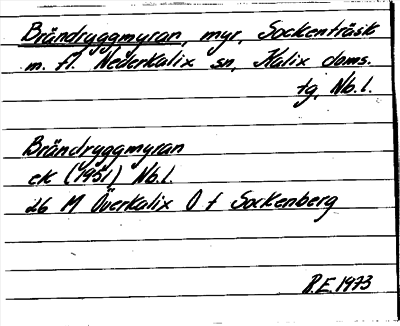 Brändryggmyran, myr, Sockenträsk
m. fl. Nederkalix sn, Kalix doms.
tg, Nb. l.
Brändryggmyran
ek (1951) Nb. l.
26 M Överkalix O f Sockenberg
R.E. 1973